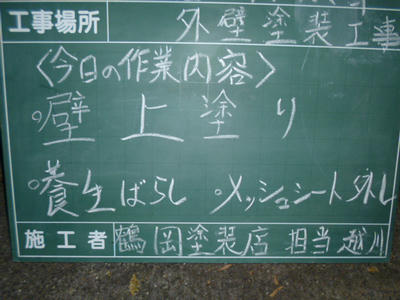 工事場所 外壁塗装工事
〈今日の作業内容〉
○壁上塗り
○養生ばらし ○メッシュシート外し
施工者 鶴岡塗装店 担当越川